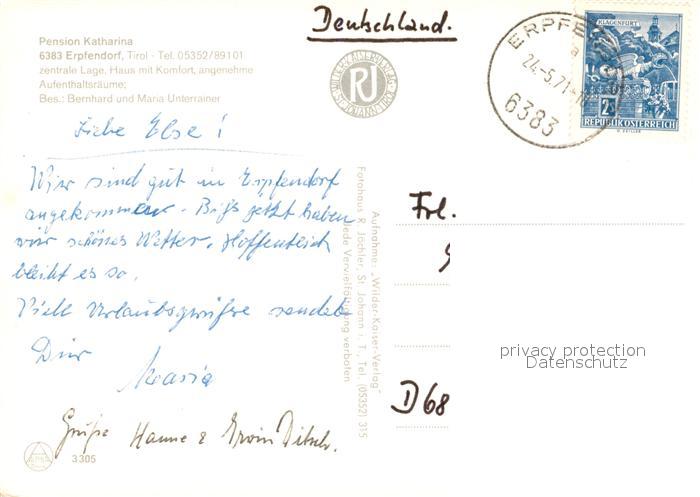 Deutschland.
Pension Katharina
6383 Erpfendorf, Tirol - Tel. 05352/89101
zentrale Lage, Haus mit Komfort, angenehme
Aufenthaltsräume;
Bes.: Bernhard und Maria Unterrainer
RJ
ERPFE
24.-5.71-
a
6383
KLAGENFURT
2S
REPUBLIK ÖSTERREICH
Liebe Else!
Wir sind gut in Erpfendorf
angekommen. Bis jetzt haben
wir schönes Wetter, Hoffentlich
bleibt es so.
Viele Urlaubsgrüße sendet
Dir
Maria
Grüße Hanne & Erwin
3305
Aufnahme: „Wilder-Kaiser-Verlag"
Fotohaus R. Jöchler, St. Johann i. T., Tel. (05352) 315
Jede Vervielfältigung verboten
Frl.
D 68
privacy protection
Datenschutz